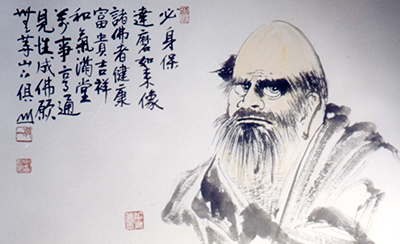 必身保
達磨如来像
諸佛者健康
富貴吉祥
和氣滿堂
萬事亨通
見性成佛願
山